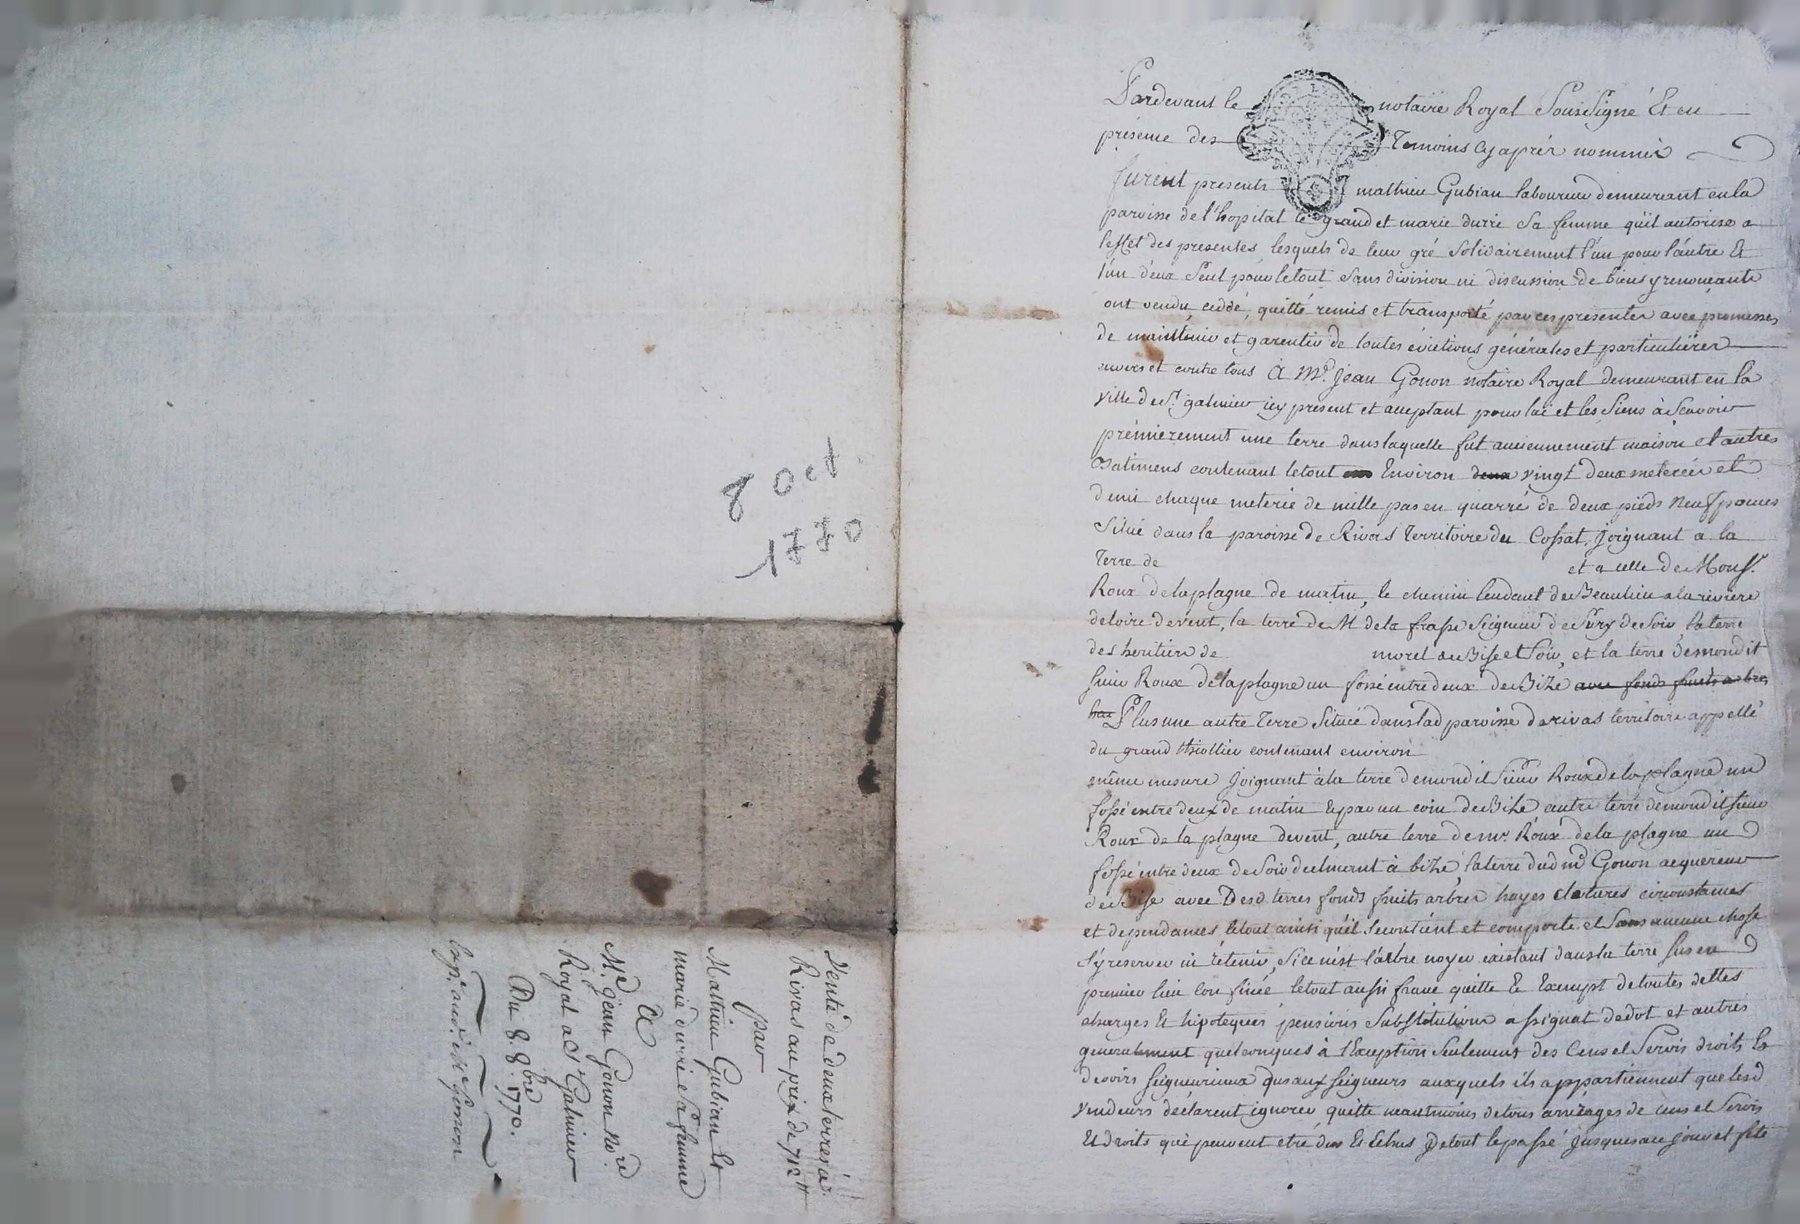 8 oct
1770
Vente de deux terres à
Rivas au prix de 712 ₶
par
Mathieu Gubian Et
marie durie sa femme
A
Me. Jean Gonon No.re
Royal a St Galmier
Du 8. 8bre 1770.
Pardevant le notaire Royal Soussigné Et en
présence des Temoins cy après nommés
furent presents mathieu Gubian laboureur demeurant en la
paroisse de l'hopital le grand et marie durie sa femme qu'il autorise a
leffet des presentes lesquels de leur gré solidairement l'un pour l'autre Et
l'un d'eux seul pour le tout sans division ni discussion de biens y renonçants
ont vendu, ceddé, quitté remis et transporté par ces presentes avec promesses
de maintenir et garentir de toutes évictions générales et particulières
envers et contre tous A Me. Jean Gonon notaire Royal demeurant en la
ville de St. galmier icy present et acceptant pour lui et les siens à Scavoir
prémierement une terre dans laquelle fut anciennement maison et autres
Batimens contenant le tout Environ vingt deux meterées et
demi chaque meterée de mille pas en quarré de deux pieds neuf pouces
Situé dans la paroisse de Rivas Territoire du Cossat, joignant a la
Terre de et a celle de Monsr.
Roux de la plagne de matin, le chemin tendant de Beaulieu a la riviere
de loire de vent, la terre de M de la frasse Seigneur de Sury de Soir, la terre
des heritiers de morel de Bise et Soir, et la terre de mondit
sieur Roux de la plagne un fossé entre deux de Bize avec fonds fruits arbres
hai Plus une autre Terre Située dans lad paroisse de rivas territoire appellé
du grand contenant environ
même mesure joignant à la terre de mondit sieur Roux de la plagne un
fossé entre deux de matin Et par un coin de Bize autre terre de mondit sieur
Roux de la plagne de vent, autre terre de mr. Roux de la plagne un
fossé entre deux de Soir declinant à bize, la terre dud me Gonon acquereur
de Bise avec Desd terres fonds fruits arbres hayes clotures circonstances
et dependances, le tout ainsi qu'il se contient et comporte et sans aucune chose
s'y reserver ni retenir, si ce n'est l'arbre noyer existant dans la terre sus en
premier lieu confinée le tout aussi franc quitte Et Exempt de toutes dettes
charges Et hipoteques pensions Substitutions assignat de dot et autres
generalement quelconques à l'Exception Seulement des Cens et Servis droits Et
devoirs Seigneuriaux dus aux seigneurs auxquels ils appartiennent que lesd
vendeurs déclarent ignorer, quitte neantmoins de tous arrérages de cens et Servis
Et droits qui peuvent etre dus Et Echus de tout le passé jusques au jour et fête